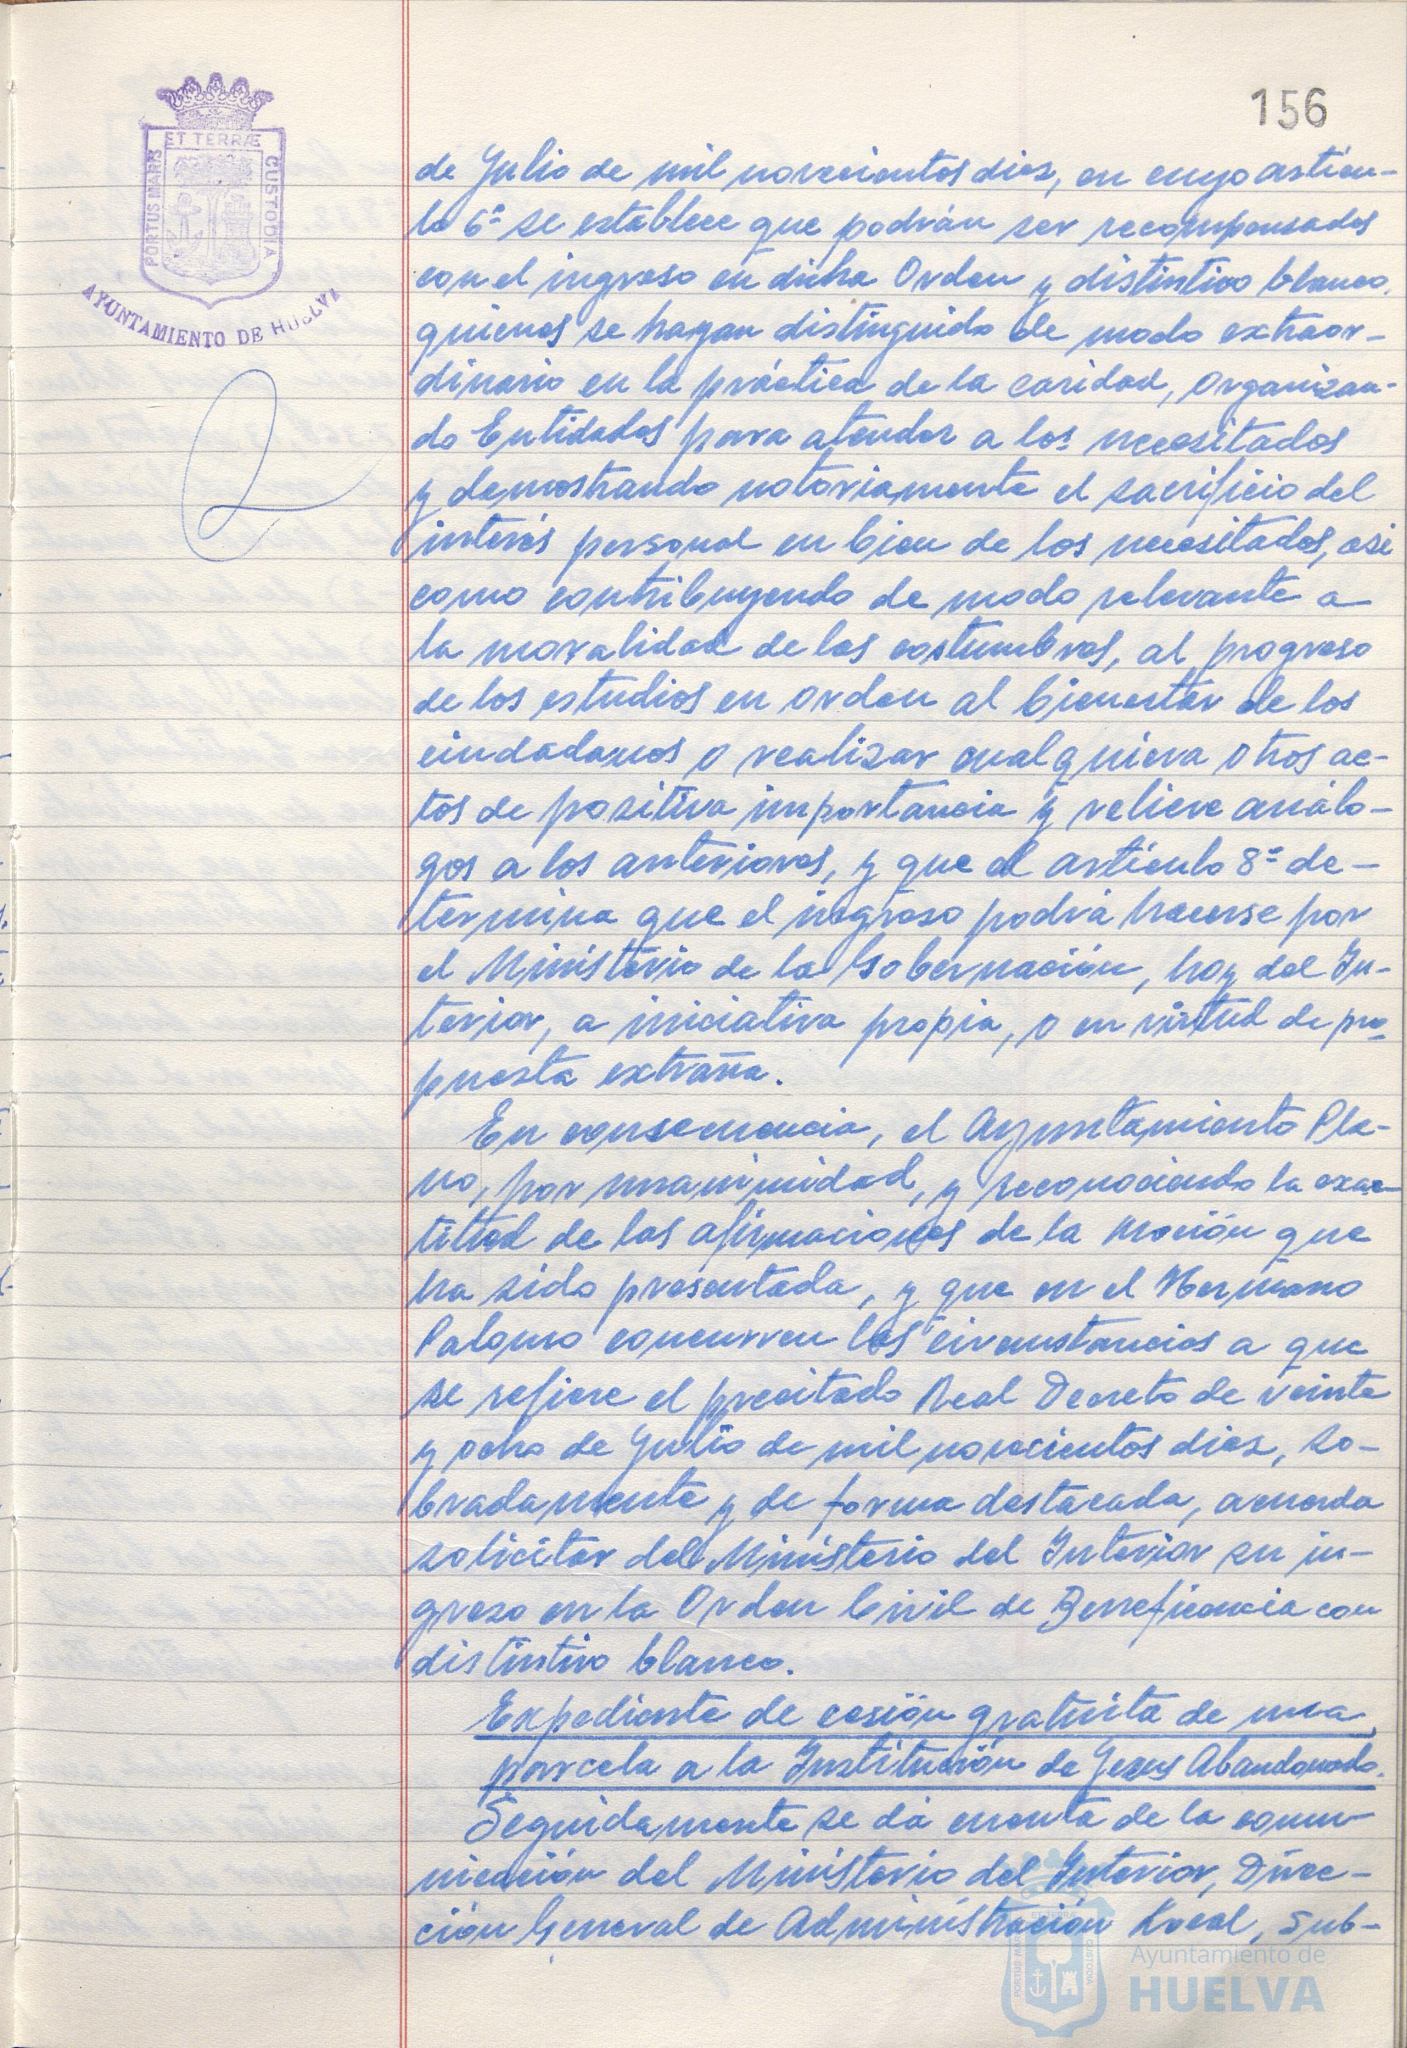 156
ET TERRÆ
PORTUS MARIS
CUSTODIA
AYUNTAMIENTO DE HUELVA
de Julio de mil novecientos diez, en cuyo artícu-
lo 6º se establece que podrán ser recompensados
con el ingreso en dicha Orden y distintivo blanco,
quienes se hayan distinguido de modo extraor-
dinario en la práctica de la caridad, organizan-
do Entidades para atender a los necesitados
y demostrando notoriamente el sacrificio del
interés personal en bien de los necesitados, asi
como contribuyendo de modo relevante a
la moralidad de las costumbres, al progreso
de los estudios en orden al bienestar de los
ciudadanos o realizar cualquiera otros ac-
tos de positiva importancia y relieve análo-
gos a los anteriores, y que el artículo 8º de-
termina que el ingreso podrá hacerse por
el Ministerio de la Gobernación, hoy del In-
terior, a iniciativa propia, o en virtud de pro-
puesta extraña.
En consecuencia, el Ayuntamiento Ple-
no, por unanimidad, y reconociendo la exac-
titud de las afirmaciones de la moción que
ha sido presentada, y que en el Hermano
Palomo concurren las circunstancias a que
se refiere el precitado Real Decreto de veinte
y ocho de Julio de mil novecientos diez, so-
bradamente y de forma destacada, acuerda
solicitar del Ministerio del Interior su in-
greso en la Orden Civil de Beneficencia con
distintivo blanco.
Expediente de cesión gratuita de una
parcela a la Institución de Jesus Abandonado.
Seguidamente se dá cuenta de la comu-
nicación del Ministerio del Interior, Direc-
ción General de Administración Local, Sub-
Ayuntamiento de
HUELVA